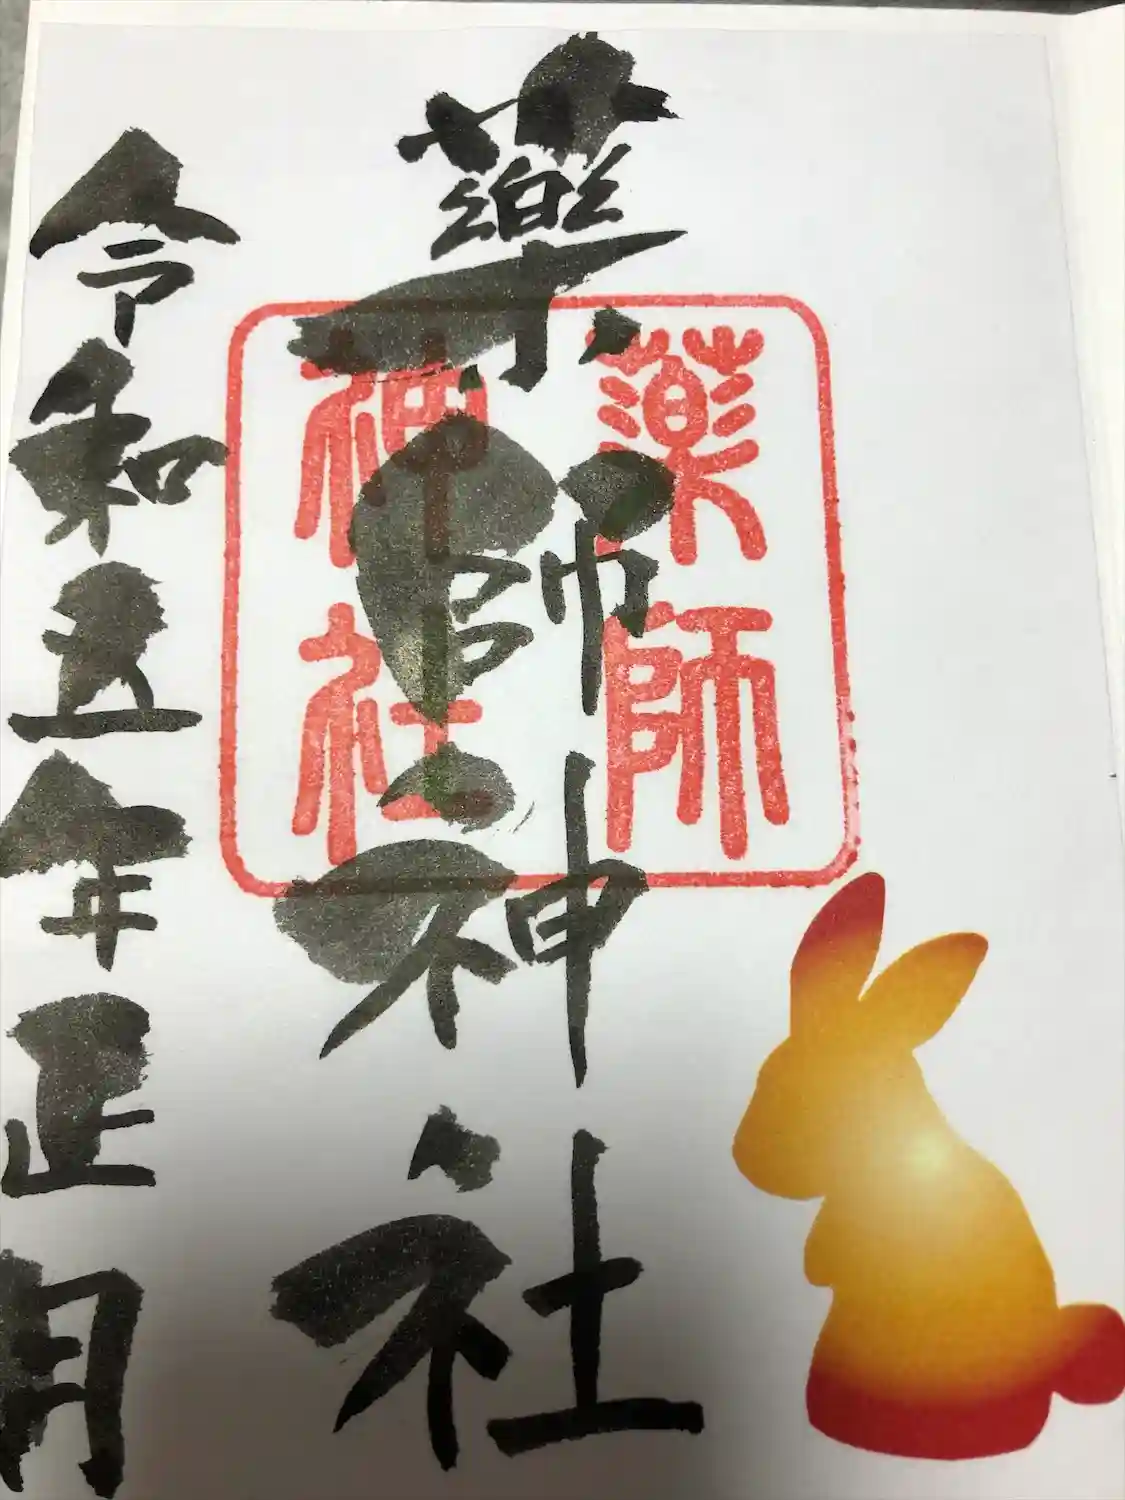 薬師神社
薬師
神社
令和五年正月